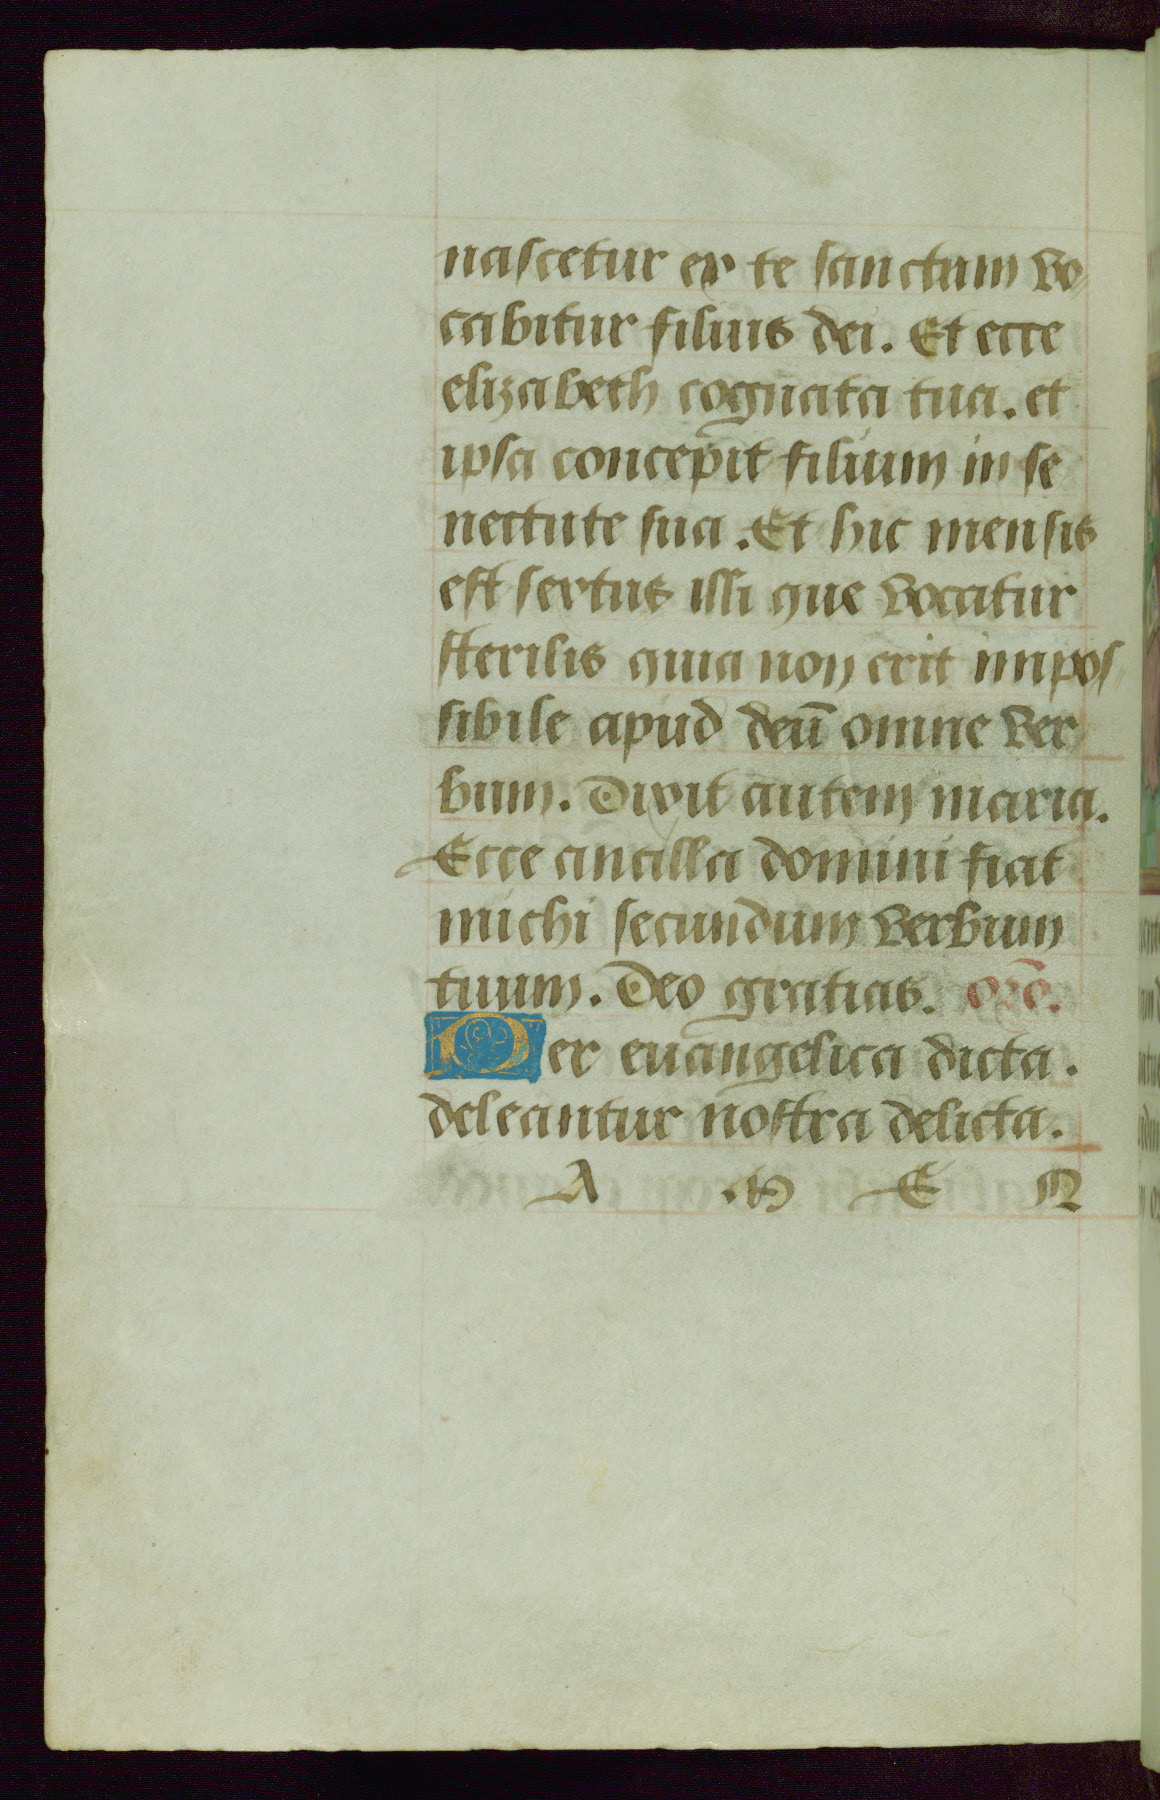 nascetur ex te sanctum vo
cabitur filius dei. Et ecce
elizabeth cognata tua. et
ipsa concepit filium in se
nectute sua. Et hic mensis
est sextus illi que vocatur
sterilis quia non erit impos
sibile apud deū omne ver
bum. Dixit autem maria.
Ecce ancilla domini fiat
michi secundum verbum
tuum. Deo gratias. orō.
Per euangelica dicta.
deleantur nostra delicta.
A M E N